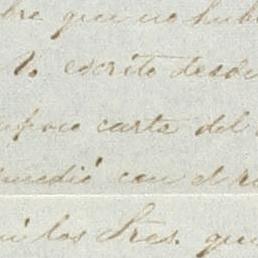 bre que no hub
1o escrito desd
mpoco carta del
medió con el r
los Sres. qu